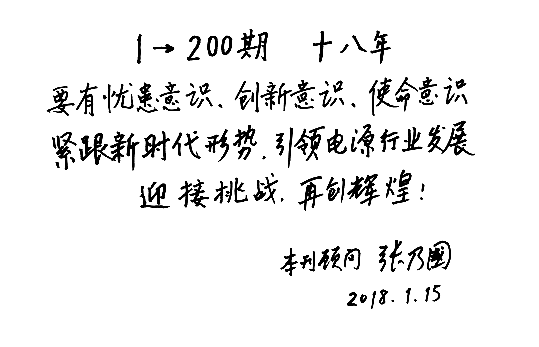 1→200期 十八年
要有忧患意识、创新意识、使命意识
紧跟新时代形势,引领电源行业发展
迎接挑战,再创辉煌!
本刊顾问 张乃國
2018.1.15